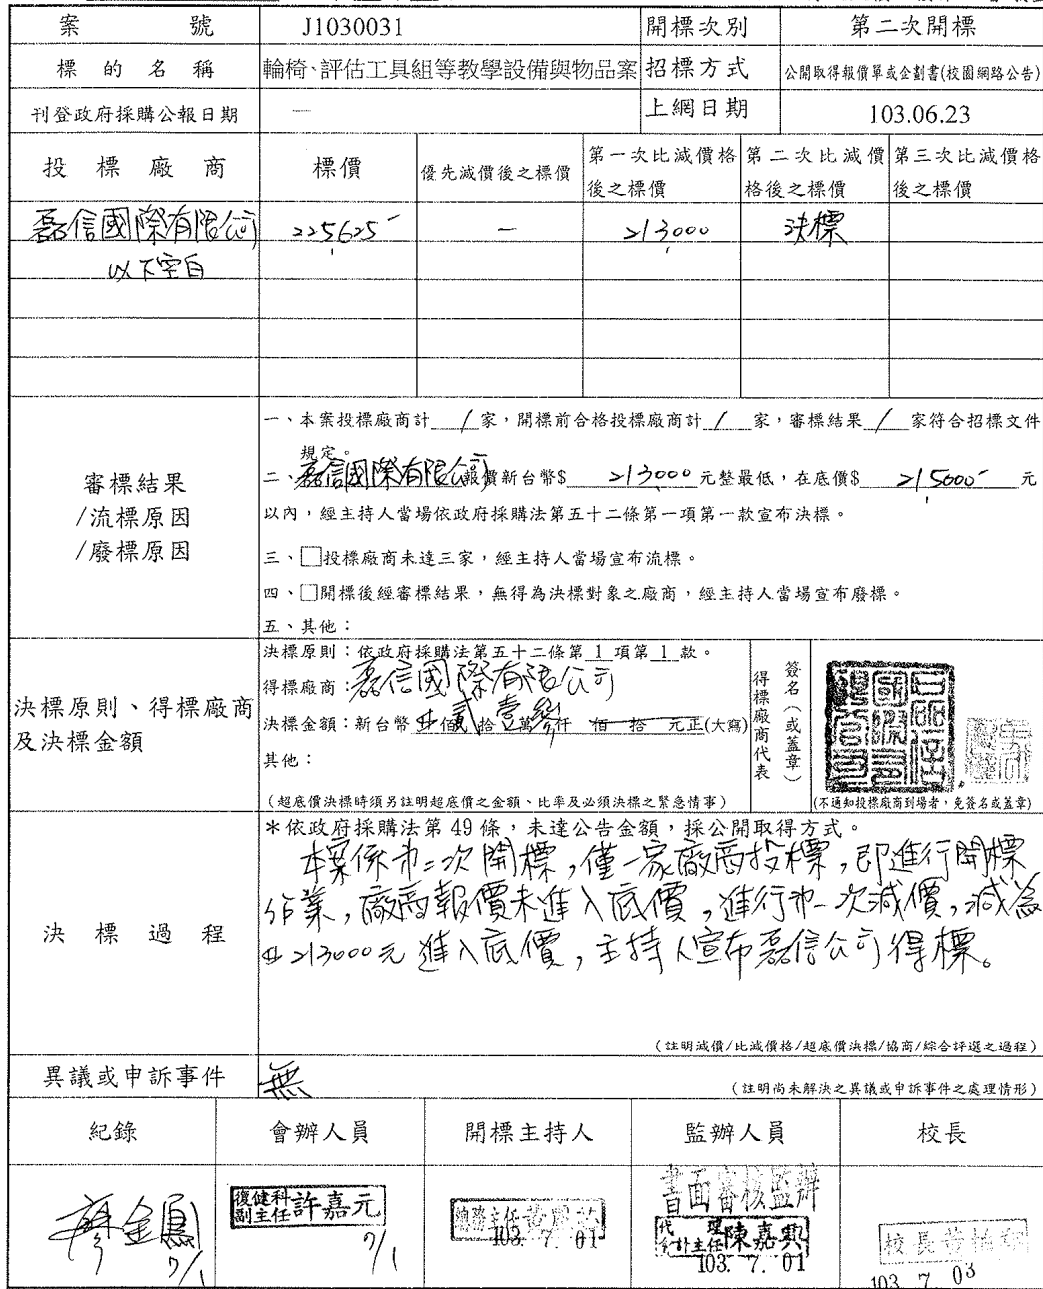 案號 J1030031 開標次別 第二次開標
標的名稱 輪椅、評估工具組等教學設備與物品案 招標方式 公開取得報價單或企劃書(校園網路公告)
刊登政府採購公報日期 — 上網日期 103.06.23
投標廠商 標價 優先減價後之標價 第一次比減價格後之標價 第二次比減價格後之標價 第三次比減價格後之標價
磊信國際有限公司 225,625 — 213,000 決標
以下空白
審標結果
/流標原因
/廢標原因
一、本案投標廠商計 1 家，開標前合格投標廠商計 1 家，審標結果 1 家符合招標文件
規定。
二、磊信國際有限公司報價新台幣$ 213,000 元整最低，在底價$ 215,000 元
以內，經主持人當場依政府採購法第五十二條第一項第一款宣布決標。
三、□投標廠商未達三家，經主持人當場宣布流標。
四、□開標後經審標結果，無得為決標對象之廠商，經主持人當場宣布廢標。
五、其他：
決標原則、得標廠商
及決標金額
決標原則：依政府採購法第五十二條第 1 項第 1 款。
得標廠商：磊信國際有限公司
決標金額：新台幣 佰貳拾壹萬參仟 佰 拾 元正(大寫)
其他：
(超底價決標時須另註明超底價之金額、比率及必須決標之緊急情事)
得標廠商代表
簽名（或蓋章）
(不通知投標廠商到場者，免簽名或蓋章)
決標過程
＊依政府採購法第 49 條，未達公告金額，採公開取得方式。
本案係第二次開標，僅一家廠商投標，即進行開標
作業，廠商報價未進入底價，進行第一次減價，減為
$213000元進入底價，主持人宣布磊信公司得標。
(註明減價/比減價格/超底價決標/協商/綜合評選之過程)
異議或申訴事件 無 (註明尚未解決之異議或申訴事件之處理情形)
紀錄 會辦人員 開標主持人 監辦人員 校長
書面審核監辦
廖金鳳 7/1
復健科副主任 許嘉元 7/1
總務主任
103. 7. 01
代理會計主任 陳嘉興
103. 7. 01
校長黃
103. 7. 03